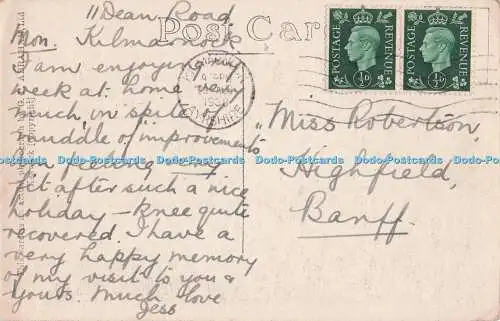 11 Dean Road
Post Card
Mon. Kilmarnock
I am enjoying
week at home
much, in spite of
muddle of improvements
feeling very
fit after such a nice
holiday – knee quite
recovered. I have a
very happy memory
of my visit to you &
yours. Much love
Jess
POSTAGE
REVENUE
½D
POSTAGE
REVENUE
½D
KILMARNOCK
AYRSHIRE
Miss Robertson,
Highfield,
Banff.
Dodo-Postcards Dodo-Postcards Dodo-Postcards Dodo-Postcards Dodo-Postcards Dodo-Postcards